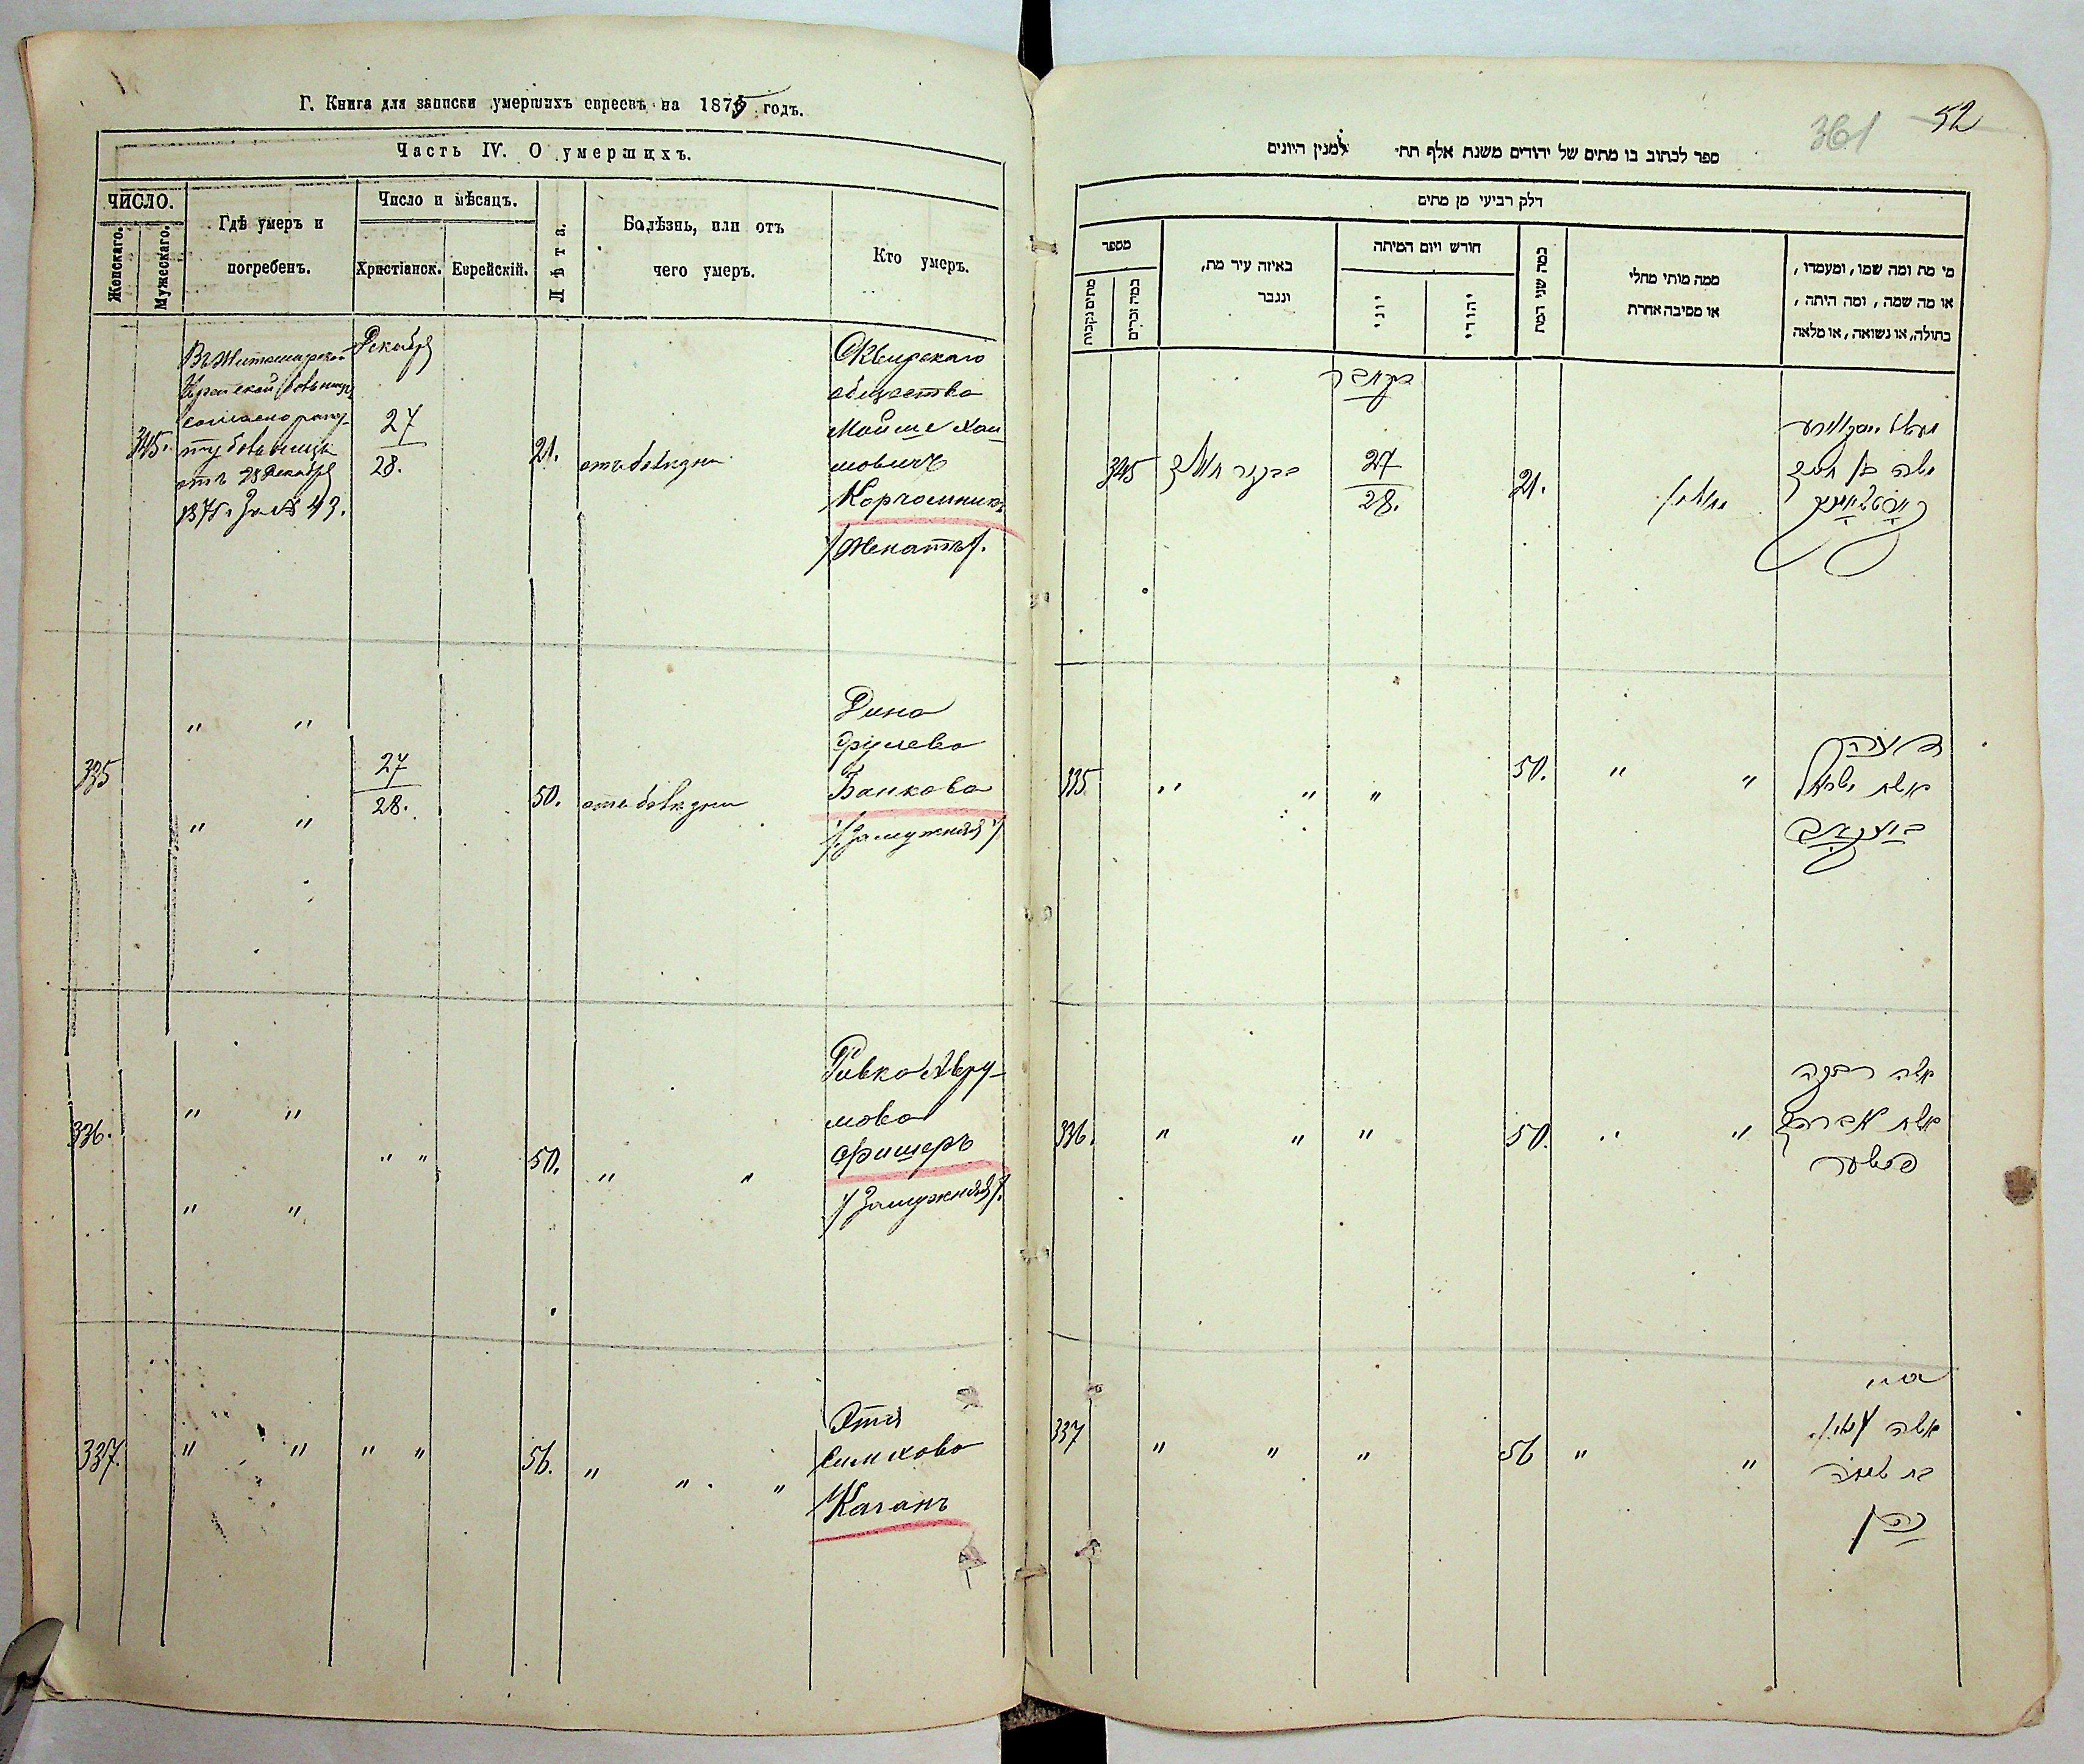 Г. Книга для записки умершихъ евреевъ на 1875 годъ.
Часть IV. О умершихъ.
ЧИСЛО.
Женскаго.
Мужескаго.
Гдѣ умеръ и
погребенъ.
Число и мѣсяцъ.
Христіанск.
Еврейскій.
Лѣта.
Болѣзнь, или отъ
чего умеръ.
Кто умеръ.
345.
Въ Житомирской
Еврейской больницѣ
согласно рапор-
ту больницы
отъ 28 Декабря
1875 г. за № 43.
Декабря
27
28.
21.
отъ болѣзни
Сквирскаго
общества
Мойше Хаи-
мовичъ
Корчемникъ
/Женатъ/.
335
" "
" "
27
28.
50.
отъ болѣзни
Дина
Срулева
Банкова
/Замужняя/
336.
" "
" "
" "
50.
" "
Ривка Авру-
мова
Фишеръ
/Замужняя/.
337.
" "
" "
56.
" " "
Этя
Симхова
Каганъ
361
52
ספר לכתוב בו מתים של יהודים משנת אלף תת׳ למנין היונים
חלק רביעי מן מתים
מספר
מתים נקבות
כמה זכרים
באיזה עיר מת,
ונגבר
חודש ויום המיתה
יוני
יהודי
כמה שני המת
ממה מותי מחלי
או מסיבה אחרת
מי מת ומה שמו, ומעמדו,
או מה שמה, ומה היתה,
בתולה, או נשואה, או מלאה
345
27
28.
21.
משה בן חיים
335
" "
"
50.
" "
אשת ישראל
336.
" "
"
50.
" "
אשה רבקה
אשת אברהם
פישער
337
" "
"
56
" "
בת שמחה
כהן